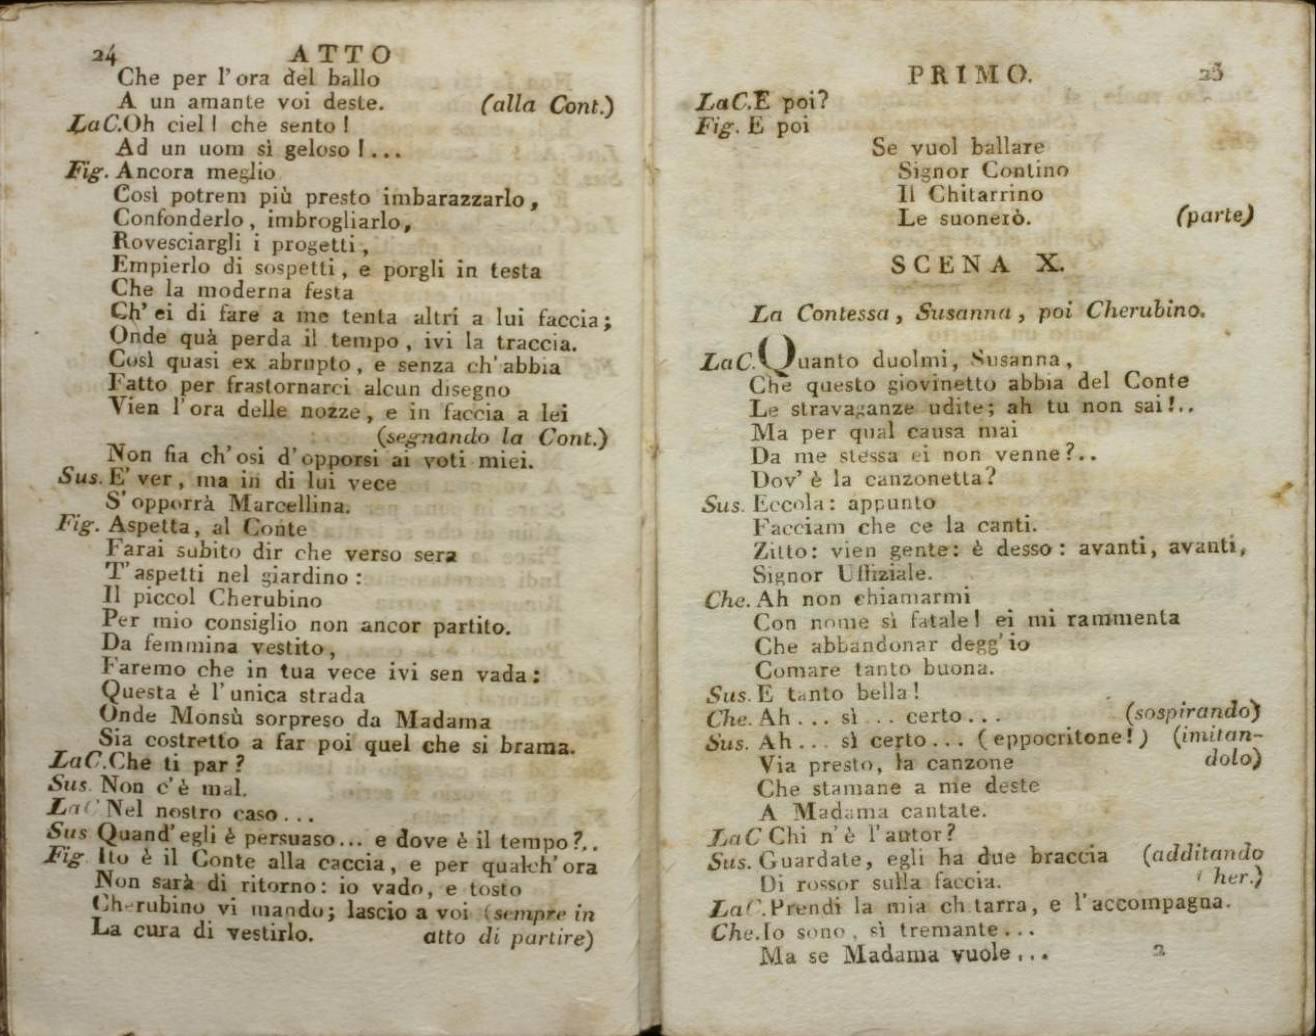 24 ATTO
Che per l'ora del ballo
A un amante voi deste. (alla Cont.)
La C. Oh ciel! che sento!
Ad un uom sì geloso!...
Fig. Ancora meglio
Così potrem più presto imbarazzarlo,
Confonderlo, imbrogliarlo,
Rovesciargli i progetti,
Empierlo di sospetti, e porgli in testa
Che la moderna festa
Ch'ei di fare a me tenta altri a lui faccia;
Onde quà perda il tempo, ivi la traccia.
Così quasi ex abrupto, e senza ch'abbia
Fatto per frastornarci alcun disegno
Vien l'ora delle nozze, e in faccia a lei
(segnando la Cont.)
Non fia ch'osi d'opporsi ai voti miei.
Sus. E' ver, ma in di lui vece
S'opporrà Marcellina.
Fig. Aspetta, al Conte
Farai subito dir che verso sera
T'aspetti nel giardino:
Il piccol Cherubino
Per mio consiglio non ancor partito.
Da femmina vestito,
Faremo che in tua vece ivi sen vada:
Questa è l'unica strada
Onde Monsù sorpreso da Madama
Sia costretto a far poi quel che si brama.
La C. Che ti par?
Sus. Non c'è mal.
La C Nel nostro caso...
Sus Quand'egli è persuaso... e dove è il tempo?..
Fig Ito è il Conte alla caccia, e per qualch'ora
Non sarà di ritorno: io vado, e tosto
Cherubino vi mando; lascio a voi (sempre in
La cura di vestirlo. atto di partire)
PRIMO. 25
La C. E poi?
Fig. E poi
Se vuol ballare
Signor Contino
Il Chitarrino
Le suonerò. (parte)
SCENA X.
La Contessa, Susanna, poi Cherubino.
La C. Quanto duolmi, Susanna,
Che questo giovinetto abbia del Conte
Le stravaganze udite; ah tu non sai!..
Ma per qual causa mai
Da me stessa ei non venne?..
Dov'è la canzonetta?
Sus. Eccola: appunto
Facciam che ce la canti.
Zitto: vien gente: è desso: avanti, avanti,
Signor Uffiziale.
Che. Ah non chiamarmi
Con nome sì fatale! ei mi rammenta
Che abbandonar degg'io
Comare tanto buona.
Sus. E tanto bella!
Che. Ah... sì... certo... (sospirando)
Sus. Ah... sì certo... (eppocritone!) (imitan-
Via presto, la canzone dolo)
Che stamane a me deste
A Madama cantate.
La C Chi n'è l'autor?
Sus. Guardate, egli ha due braccia (additando
Di rossor sulla faccia. her.)
La C. Prendi la mia chitarra, e l'accompagna.
Che. Io sono, sì tremante...
Ma se Madama vuole... 2